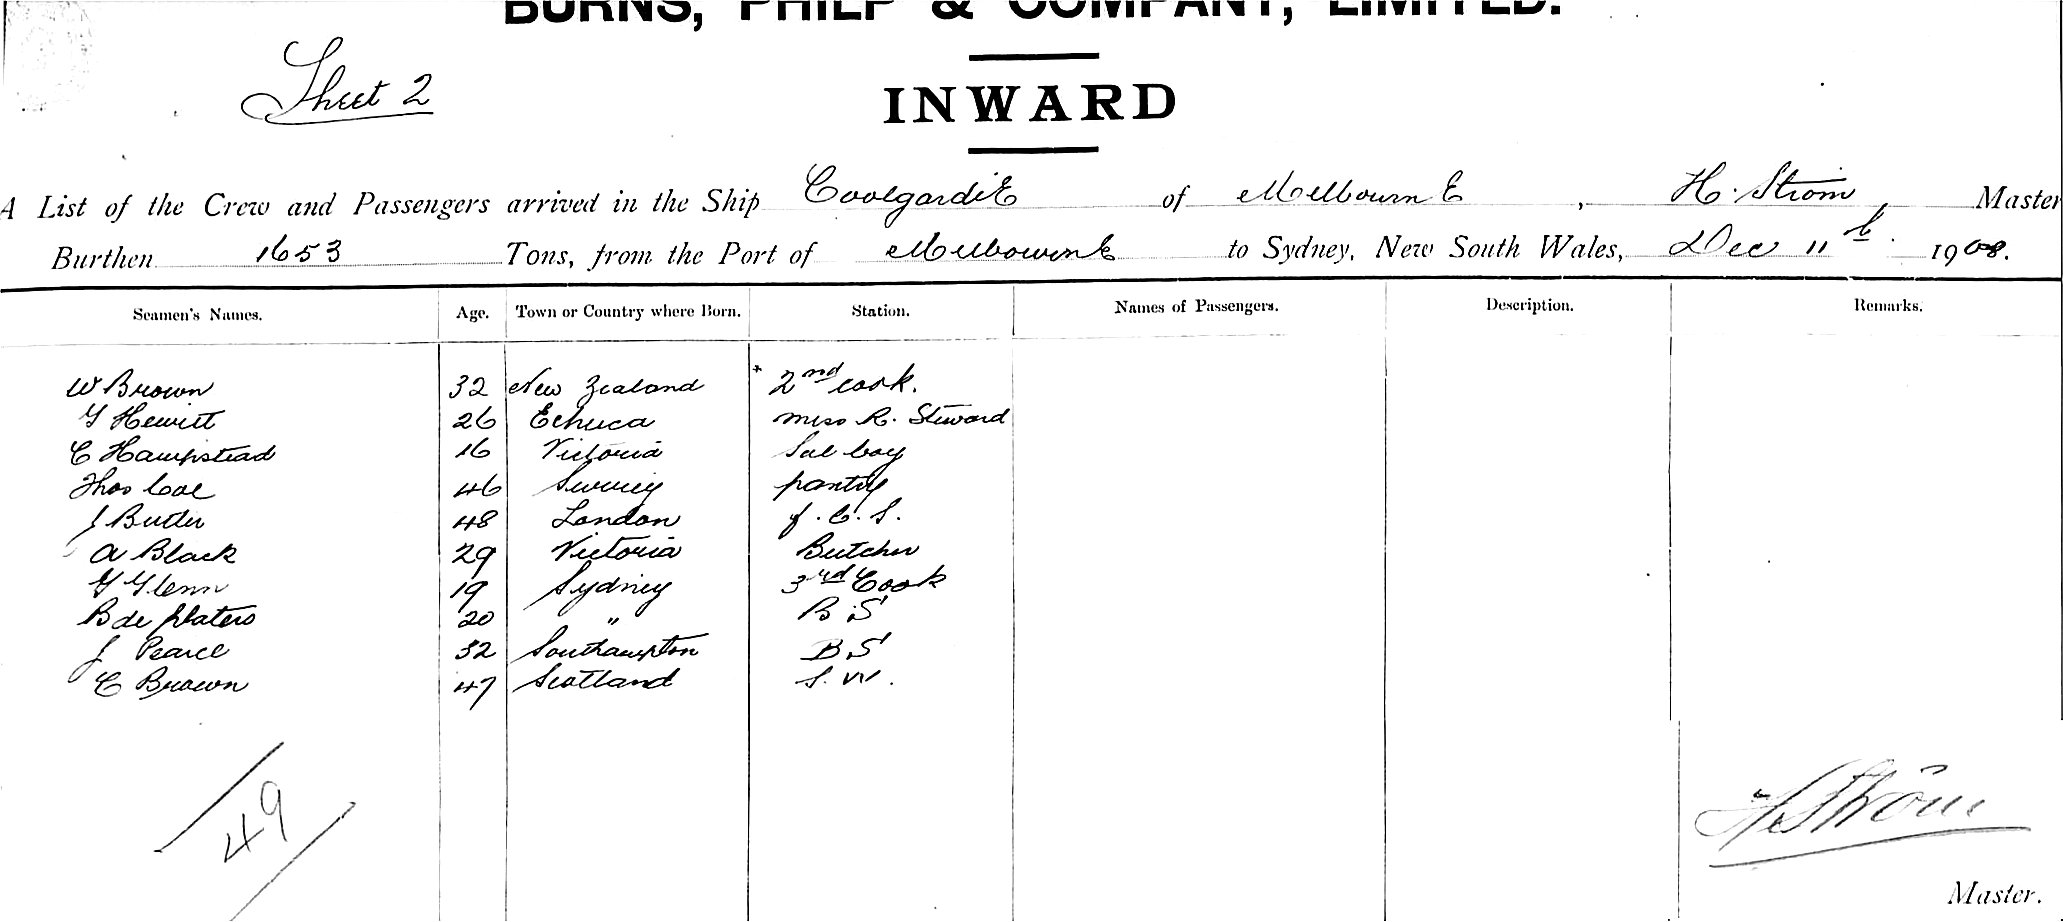 BURNS, PHILP & COMPANY, LIMITED.
Sheet 2
INWARD
A List of the Crew and Passengers arrived in the Ship CoolgardiE of MelbournE, H. Ström, Master
Burthen 1653 Tons, from the Port of MelbournE to Sydney, New South Wales, Dec 11th 1908.
Seamen's Names. Age. Town or Country where Born. Station. Names of Passengers. Description. Remarks.
W Brown 32 New Zealand 2nd cook.
Hewitt 26 Echuca mess R. Steward
C Hampstead 16 Victoria Sal boy
Thos Coe 46 Surrey pantry
J Butler 48 London f. C. S.
A Black 29 Victoria Butcher
G Glenn 19 Sydney 3rd Cook
B de 20 " B S
J Pearce 32 Southampton B S
C Brown 47 Scotland S. W.
49
H Ström
Master.